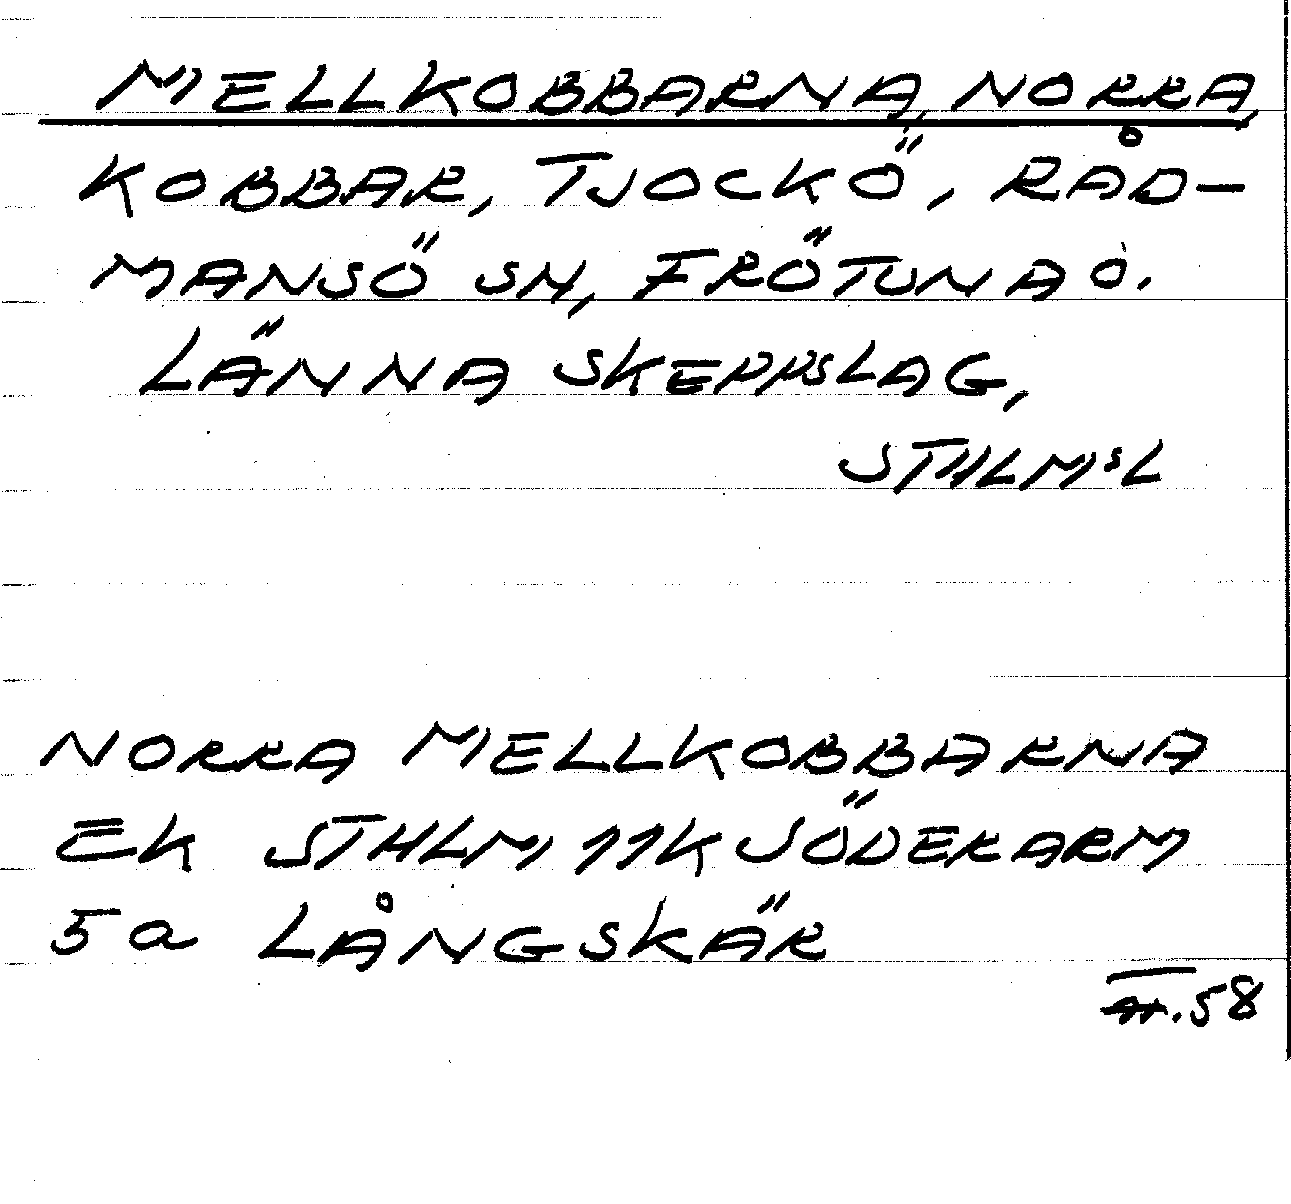 MELLKOBBARNA, NORRA,
KOBBAR, TJOCKÖ, RÅD-
MANSÖ SN, FRÖTUNA O.
LÄNNA SKEPPSLAG,
STHLMSL
NORRA MELLKOBBARNA
EK STHLM 11K SÖDERARM
5a LÅNGSKÄR
.58